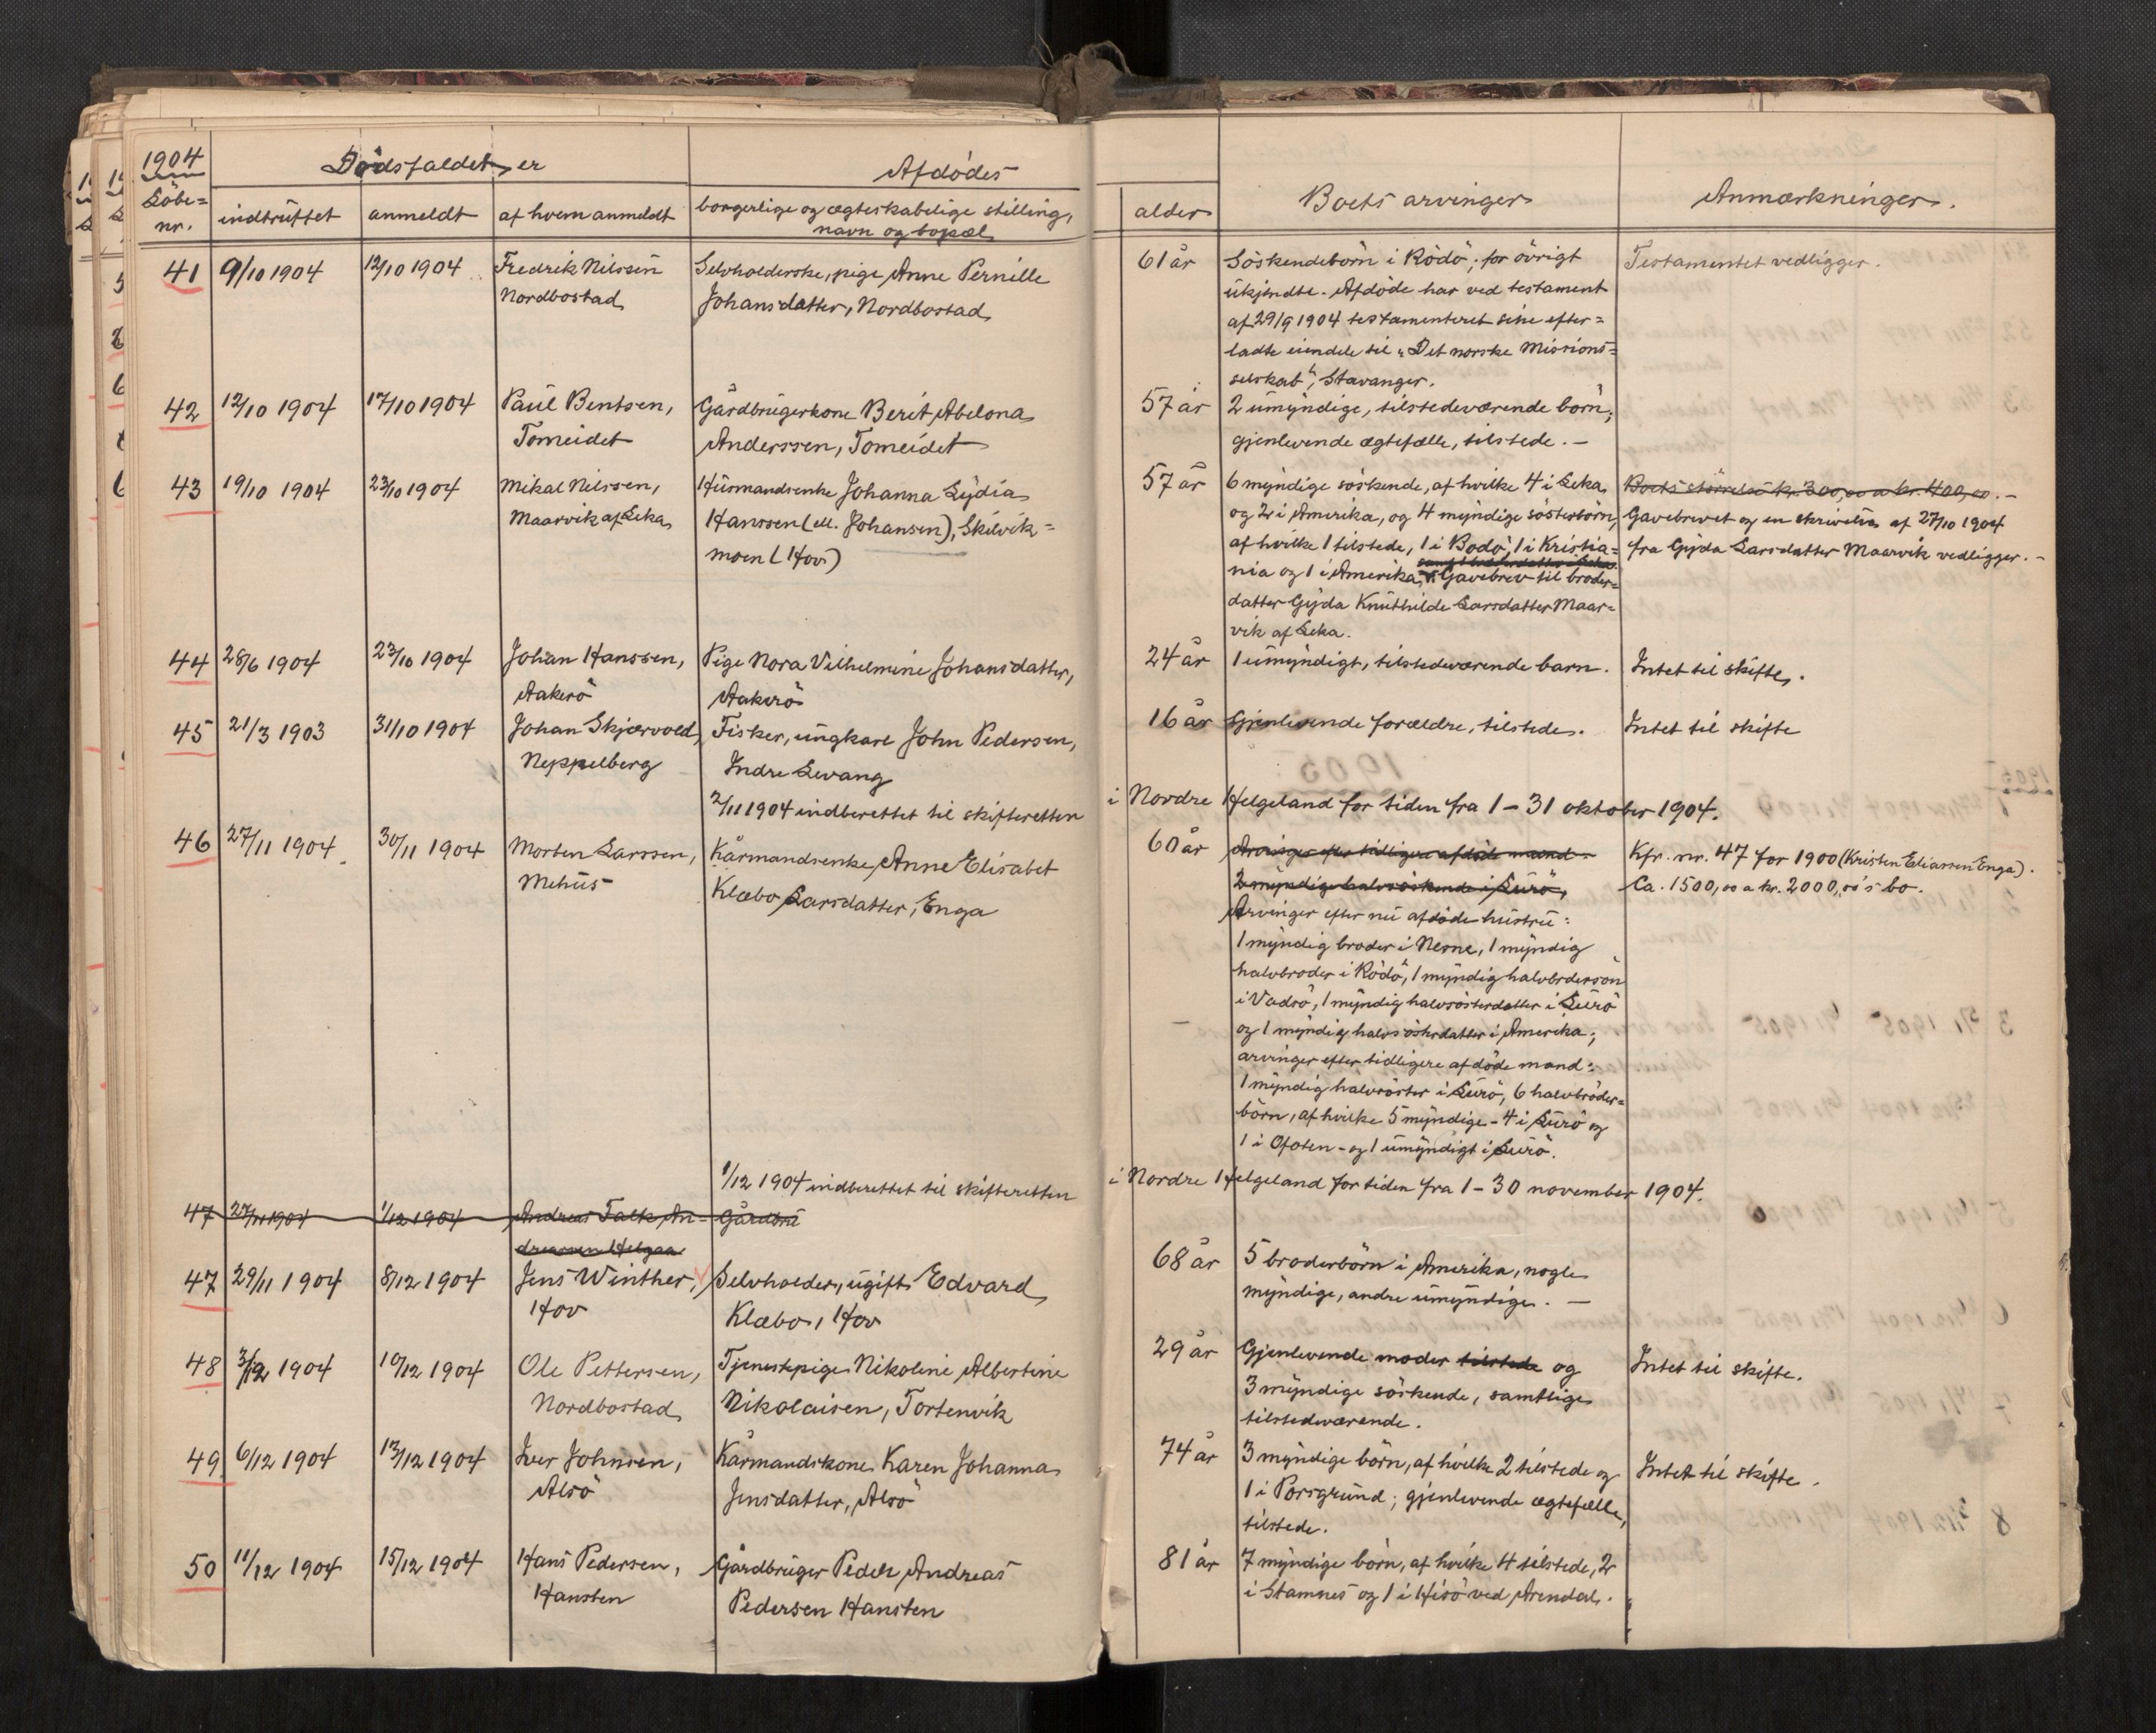 1904
Löbe=
nr.
Dødsfaldet er
indtruffet
anmeldt
af hvem anmeldt
Afdödes
borgerlige og ægteskabelige stilling,
navn og bopæl
alder
Boets arvinger
Anmærkninger.
41 9/10 1904 12/10 1904 Fredrik Nilssen Selvholderske, pige Anne Pernille 61 år Söskendebörn i Rödö; for övrigt Testamentet vedligger.
Nordbostad Johansdatter, Nordbostad ukjendte. Afdöde har ved testament
af 29/9 1904 testamenteret sine efter=
ladte eiendele til "Det norske Missions=
selskab", Stavanger.
42 12/10 1904 17/10 1904 Paul Bentsen, Gårdbrugerkone Berit Abelona 57 år 2 umyndige, tilstedeværende börn;
Tomeidet Anderssen, Tomeidet gjenlevende ægtefælle, tilstede. —
43 19/10 1904 23/10 1904 Mikal Nilssen, Husmandsenke Johanna Lydia 57 år 6 myndige söskende, af hvilke 4 i Leka Boets störrelse kr. 300,00 a kr. 400,00. —
Maarvik af Leka Hanssen (ell. Johansen), Skilvik= og 2 i Amerika, og 4 myndige sösterbörn, Gavebrevet og en skrivelse af 27/10 1904
moen (Hov) af hvilke 1 tilstede, 1 i Bodö, 1 i Kristia= fra Gyda Larsdatter Maarvik vedligger. —
nia og 1 i Amerika. Gavebrev til broder=
datter Gyda Knuthilde Larsdatter Maar=
vik af Leka.
44 28/6 1904 23/10 1904 Johan Hanssen, Pige Nora Vilhelmine Johansdatter, 24 år 1 umyndigt, tilstedeværende barn. Intet til skifte.
Aakerö Aakerö
45 21/3 1903 31/10 1904 Johan Skjærvold, Fisker, ungkarl John Pedersen, 16 år Gjenlevende forældre, tilstede. Intet til skifte
Neppelberg Indre Levang
2/11 1904 indberettet til skifteretten i Nordre Helgeland for tiden fra 1 – 31 oktober 1904.
46 27/11 1904. 30/11 1904 Morten Larssen, Kårmandsenke Anne Elisabet 60 år Arvinger efter tidligere afdöde mand – Kfr. nr. 47 for 1900 (Kristen Eliassen Enga).
Mehus Klæbo Larsdatter, Enga 2 myndige halvsöskende i Lurö, Ca. 1500,00 a kr. 2000,00's bo.
Arvinger efter nu afdöde hustru:
1 myndig broder i Nesne, 1 myndig
halvbroder i Rödö, 1 myndig halvbrdersön
i Vadsö, 1 myndig halvsösterdatter i Lurö
og 1 myndig halvsösterdatter i Amerika;
arvinger efter tidligere afdöde mand:
1 myndig halvsöster i Lurö, 6 halvbröder=
börn, af hvilke 5 myndige – 4 i Lurö og
1 i Ofoten – og 1 umyndigt i Lurö.
1/12 1904 indberettet til skifteretten i Nordre Helgeland for tiden fra 1 – 30 november 1904.
47 27/11 1904 1/12 1904 Andreas Falk An= Gårdbru
dreassen Helgaa
47 29/11 1904 8/12 1904 Jens Winther, Selvholder, ugift Edvard 68 år 5 broderbörn i Amerika, nogle
Hov Klæbo, Hov myndige, andre umyndige. —
48 3/12 1904 10/12 1904 Ole Pettersen, Tjenestepige Nikoline Albertine 29 år Gjenlevende moder tilstede og Intet til skifte.
Nordbostad Nikolaisen, Tortenvik 3 myndige söskende, samtlige
tilstedeværende.
49 6/12 1904 13/12 1904 Iver Johnsen, Kårmandskone Karen Johanna 74 år 3 myndige börn, af hvilke 2 tilstede og Intet til skifte.
Alsö Jensdatter, Alsö 1 i Porsgrund; gjenlevende ægtefælle,
tilstede.
50 11/12 1904 15/12 1904 Hans Pedersen, Gårdbruger Peder Andreas 81 år 7 myndige börn, af hvilke 4 tilstede, 2
Hansten Pedersen Hansten i Stamnes og 1 i Hisö ved Arendal.